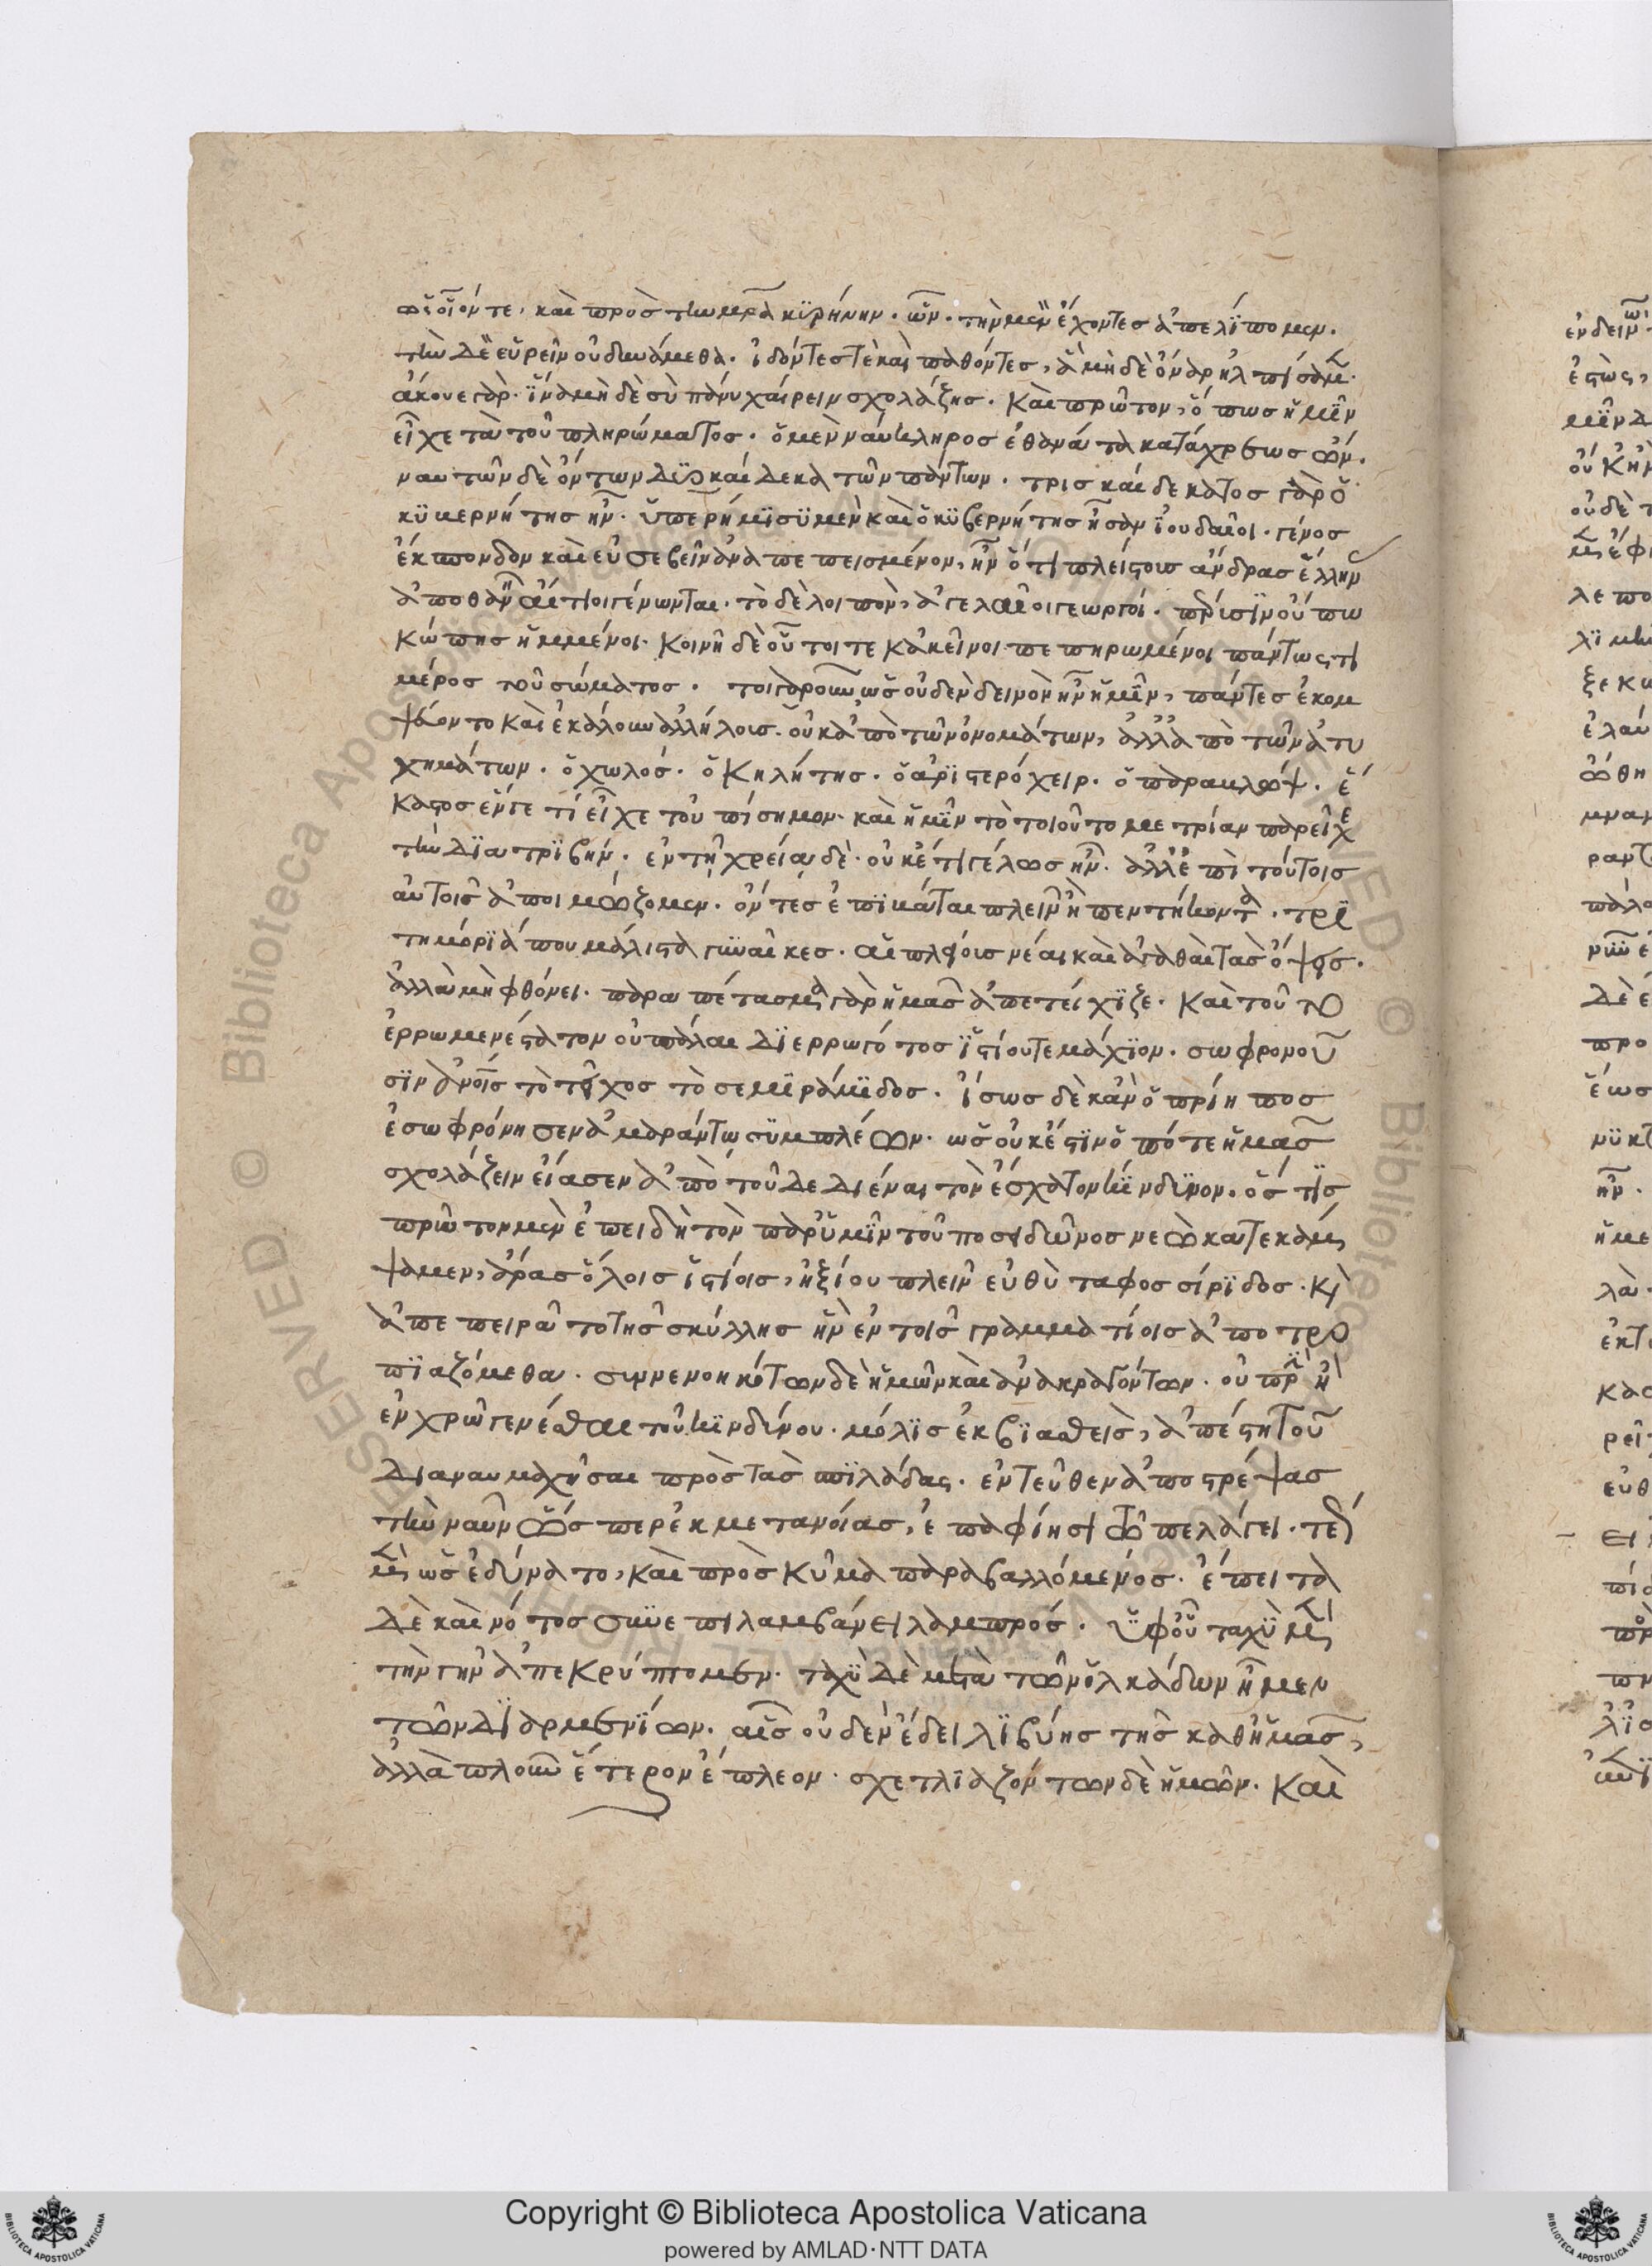 ὡς οἷόν τε, καὶ πρὸς τὴν μρᾶ κϋρήνην. ὧν. τὴν μὲν ἔχοντες ἀπελίπομεν.
τὴν δὲ εὑρεῖν οὐ δυνάμεθα. ἰδόντες τὲ καὶ παθόντες, ἃ μὴ δὲ ὄναρ ἠλπίσαμ.
ἄκουε γὰρ. ἵνα μὴ δὲ σὺ πάνυ χαίρειν σχολάζης. Καὶ πρῶτον, ὅπως ἡμῖν
εἶχε τὰ τοῦ πληρώματος. ὁ μὲν ναύκληρος ἐθανάτα κατάχρεως ὤν.
ναυτῶν δὲ ὄντων Δϋοκαίδεκα τῶν πάντων. τρισκαιδέκατος γὰρ ὁ
κϋμερνήτης ἦν. ὑπερήμισϋ μὲν καὶ ὁ κϋβερνήτης ἦσαν ἰουδαῖοι. γένος
ἔκσπονδον καὶ εὐσεβεῖν ἀναπεπεισμένον, ἢν ὅτι πλείστους ἄνδρας ἕλλην
ἀποθανεῖν αἴτιοι γένωνται. τὸ δὲ λοιπὸν, ἀγελαῖοι γεωργοί. πέρισιν οὔπω
κώπης ἡμμένοι. Κοινῆ δὲ οὗτοί τε κἀκεῖνοι πεπηρωμένοι πάντως τι
μέρος τοῦ σώματος. τοιγαροῦν ὡς οὐδὲν δεινὸν ἦν ἡμῖν, πάντες ἐκομ
ψεύοντο καὶ ἐκάλουν ἀλλήλοις. οὐκ ἀπὸ τῶν ὀνομάτων, ἀλλ' ἀπὸ τῶν ἀτυ
χημάτων. ὁ χωλός. ὁ Κηλήτης. ὁ ἀριστερόχειρ. ὁ παραβλώψ. ἕ
καστος ἕν γέ τι εἶχε τοὐπίσημον. καὶ ἡμῖν τὸ τοιοῦτο μετρίαν παρεῖχε
τὴν διατρϊβήν. ἐν τῆ χρεία δὲ. οὐκέτι γέλως ἦν. ἀλλ' ἐπὶ τούτοις
αὐτοῖς ἀποιμώζομεν. ὄντες ἐπϊβάται πλεῖν ἢ πεντήκοντα. τρϊ
τημόρϊά που μάλιστα γυναῖκες. αἱ πλείους νέαι καὶ ἀγαθαὶ τὰς ὄψεις.
ἀλλὰ μὴ φθόνει. παραπέτασμα γὰρ ἡμᾶς ἀπετείχϊζε. Καὶ τοῦτο
ἐρρωμενέστατον οὐ πάλαι Δϊερρωγότος ἱστίου τεμάχϊον. σωφρονοῦ
σϊν ἀνοῖς τὸ τεῖχος τὸ σεμϊράμϊδος. ἴσως δὲ κἂν ὁ πρίηπος
ἐσωφρόνησεν ἀμαράντω σϋμπλέων. ὡς οὐκ ἔστιν ὅποτε ἡμᾶς
σχολάζειν εἴασεν ἀπὸ τοῦ δεδιέναι τὸν ἔσχατον κίνδϋνον. ὅς τις
πρῶτον μὲν ἐπειδὴ τὸν παρ' ὑμῖν τοῦ ποσιδῶνος νεὼ κατεκάμ
ψαμεν, ἄρας ὅλοις ἱστίοις, ἠξίου πλεῖν εὐθὺ ταφοσσίρϊδος. κὶ
ἀπεπειρᾶτο τῆς σκύλλης ἣν ἐν τοῖς γραμματίοις ἀποτρο
πϊαζόμεθα. συννενοηκότων δὲ ἡμῶν καὶ ἀνακραγόντων. οὐ πρὶν ἢ
ἐν χρῶ γενέσθαι τοῦ κϊνδύνου. μόλϊς ἐκβϊασθεὶς, ἀπέστη τοῦ
διαναυμαχῆσαι πρὸς τὰς σπϊλάδας. ἐντεῦθεν ἀποστρέψας
τὴν ναῦν ὥσπερ ἐκ μετανοίας, ἐπαφίησι τῶ πελάγει. τέ
μὲν ὡς ἐδύνατο, καὶ πρὸς κῦμα παραβαλλόμενος. ἔπειτα
Δὲ καὶ νότος συνεπιλαμβάνει λαμπρός. ὑφ' οὗ ταχὺ μὲν
τὴν γῆν ἀπεκρύπτομεν. ταχὺ δὲ μετὰ τῶν ὁλκάδων ἦμεν
τῶν Δϊαρμενίων. αἷς οὐδὲν ἔδει λϊβύης τῆς καθ' ἡμᾶς,
ἀλλὰ πλοῦν ἕτερον ἔπλεον. σχετλϊαζόντων δὲ ἡμῶν. Καὶ
Copyright © Biblioteca Apostolica Vaticana
powered by AMLAD·NTT DATA